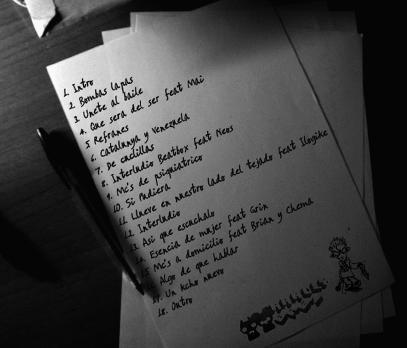 1. Intro
2. Bombas lapas
3. Unete al baile
4. Que sera del ser feat Mai
5. Refranes
6. Catalunya y Venezuela
7. De cuclillas
8. Interludio Beatbox feat Neos
9. Mc's de psiquiatrico
10. Si Pudiera
11. Llueve en nuestro lado del tejado feat Ilogike
12. Interludio
13. Asi que escuchalo
14. Esencia de mujer feat Grin
15. Mc's a domicilio feat Brian y Chema
16. Algo de que hablas
17. Un Kcho nuevo
18. Outro